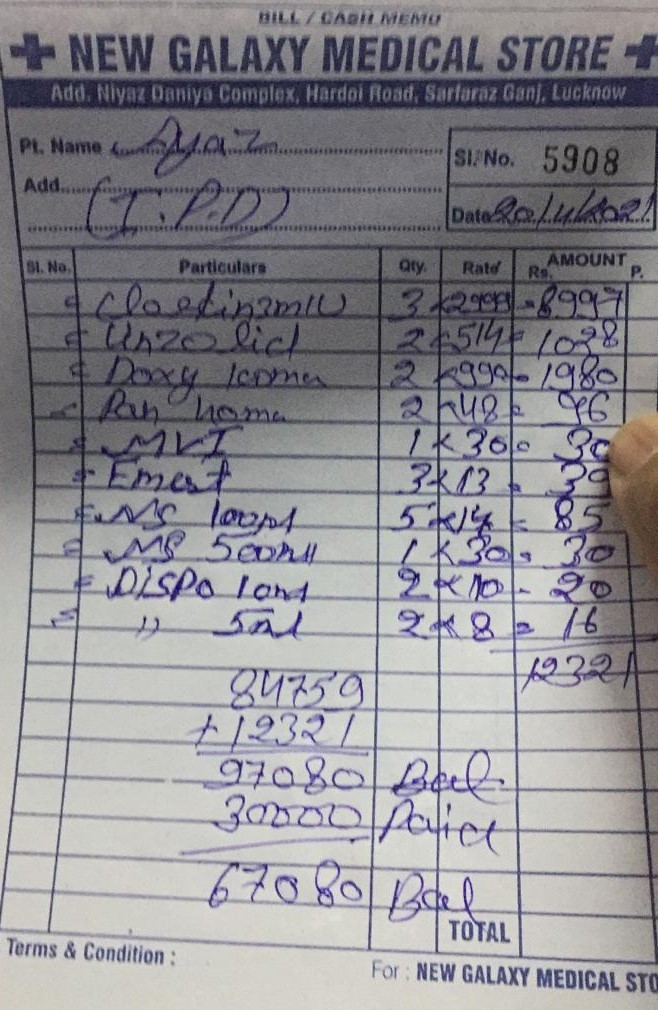 BILL / CASH MEMO
NEW GALAXY MEDICAL STORE
Add. Niyaz Daniya Complex, Hardoi Road, Sarfaraz Ganj, Lucknow
Pt. Name Ayaz
Sl. No. 5908
Add. (I.P.D)
Date 20/4/2021
Sl. No. Particulars Qty. Rate Rs. AMOUNT P.
3 × 2999 = 8997
2 × 514 = 1028
Doxy 2 × 990 = 1980
Pan 2 × 48 = 96
MVI 1 × 30 = 30
Emest 3 × 13 = 39
NS 100ml 5 × = 85
NS 500ml 1 × 30 = 30
DISPO 10ml 2 × 10 - 20
" 5ml 2 × 8 = 16
12321
84759
+12321
97080 Bal.
30000 Paid
67080 Bal
TOTAL
Terms & Condition :
For : NEW GALAXY MEDICAL STO